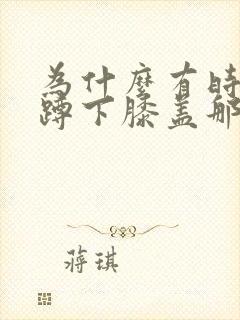 為什麼有時
蹲下膝盖那
蒋琪